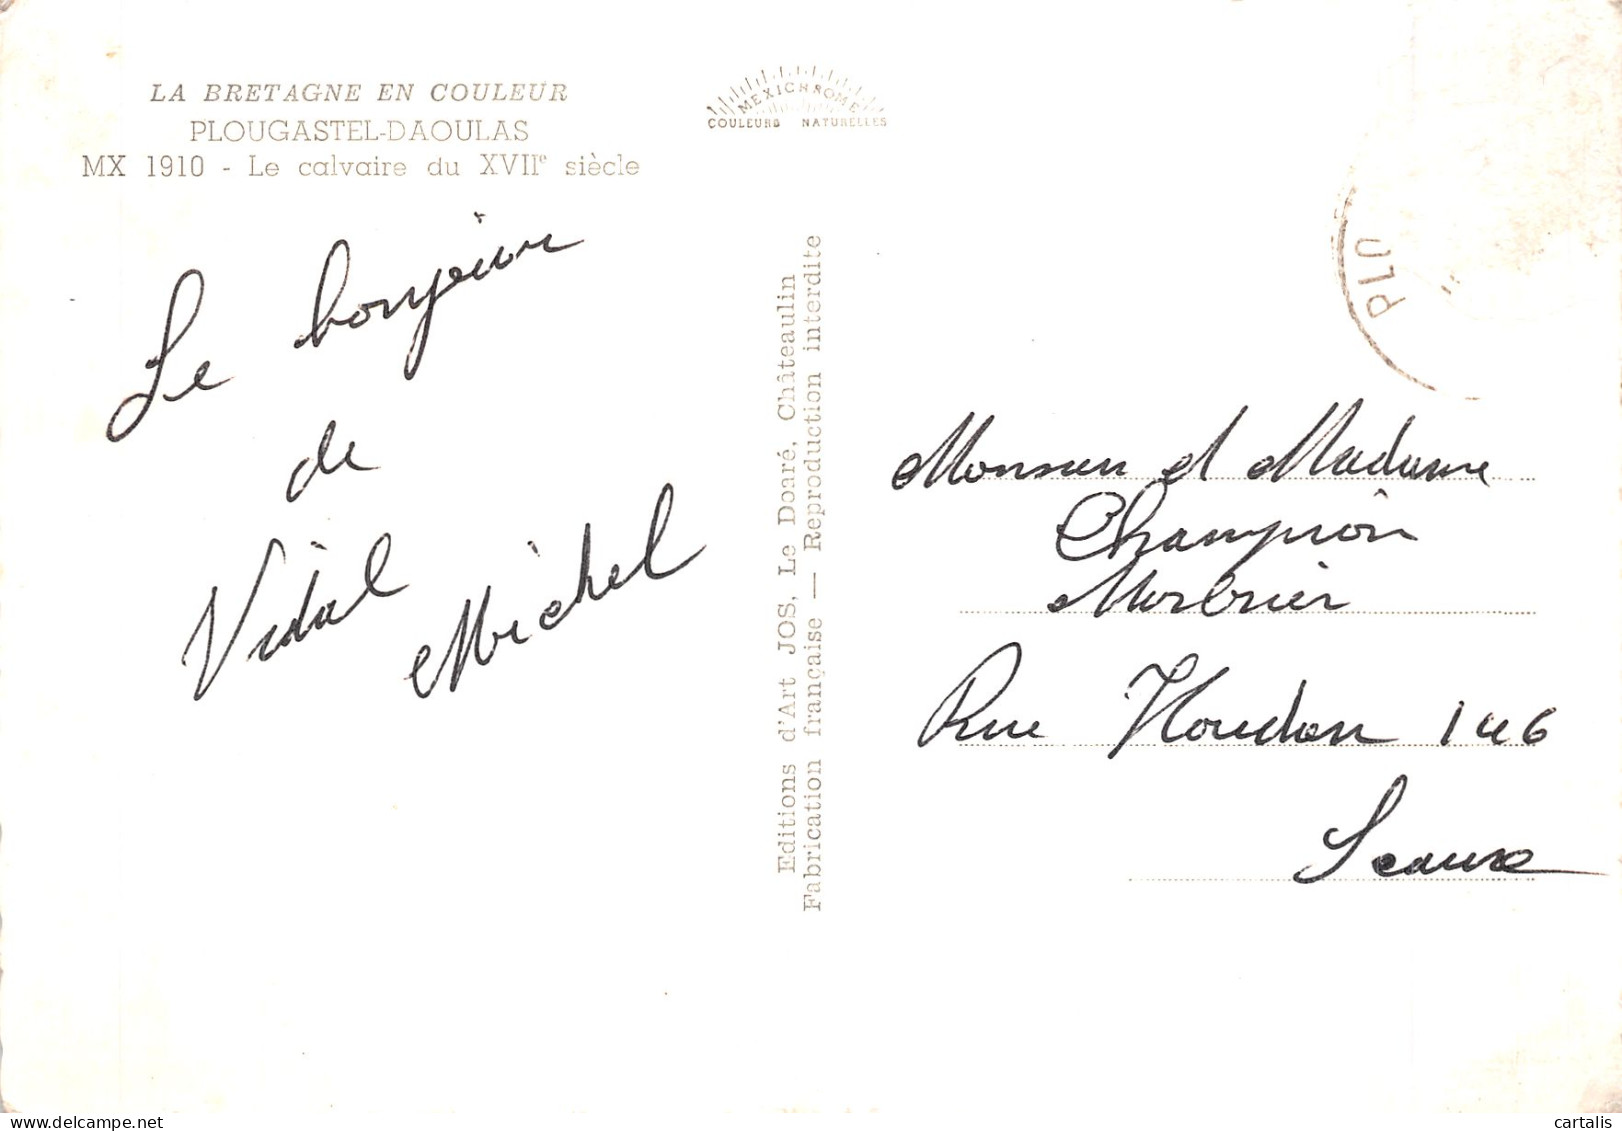 LA BRETAGNE EN COULEUR
PLOUGASTEL-DAOULAS
MX 1910 - Le calvaire du XVIIe siècle
MEXICHROME
COULEURS NATURELLES
Le bonjour
de
Vidal
Michel
Editions d'Art JOS, Le Doaré, Châteaulin
Fabrication française — Reproduction interdite
PLO
Monsieur et Madame
Champion
Rue Houdan 146
Sceaux
cartalis